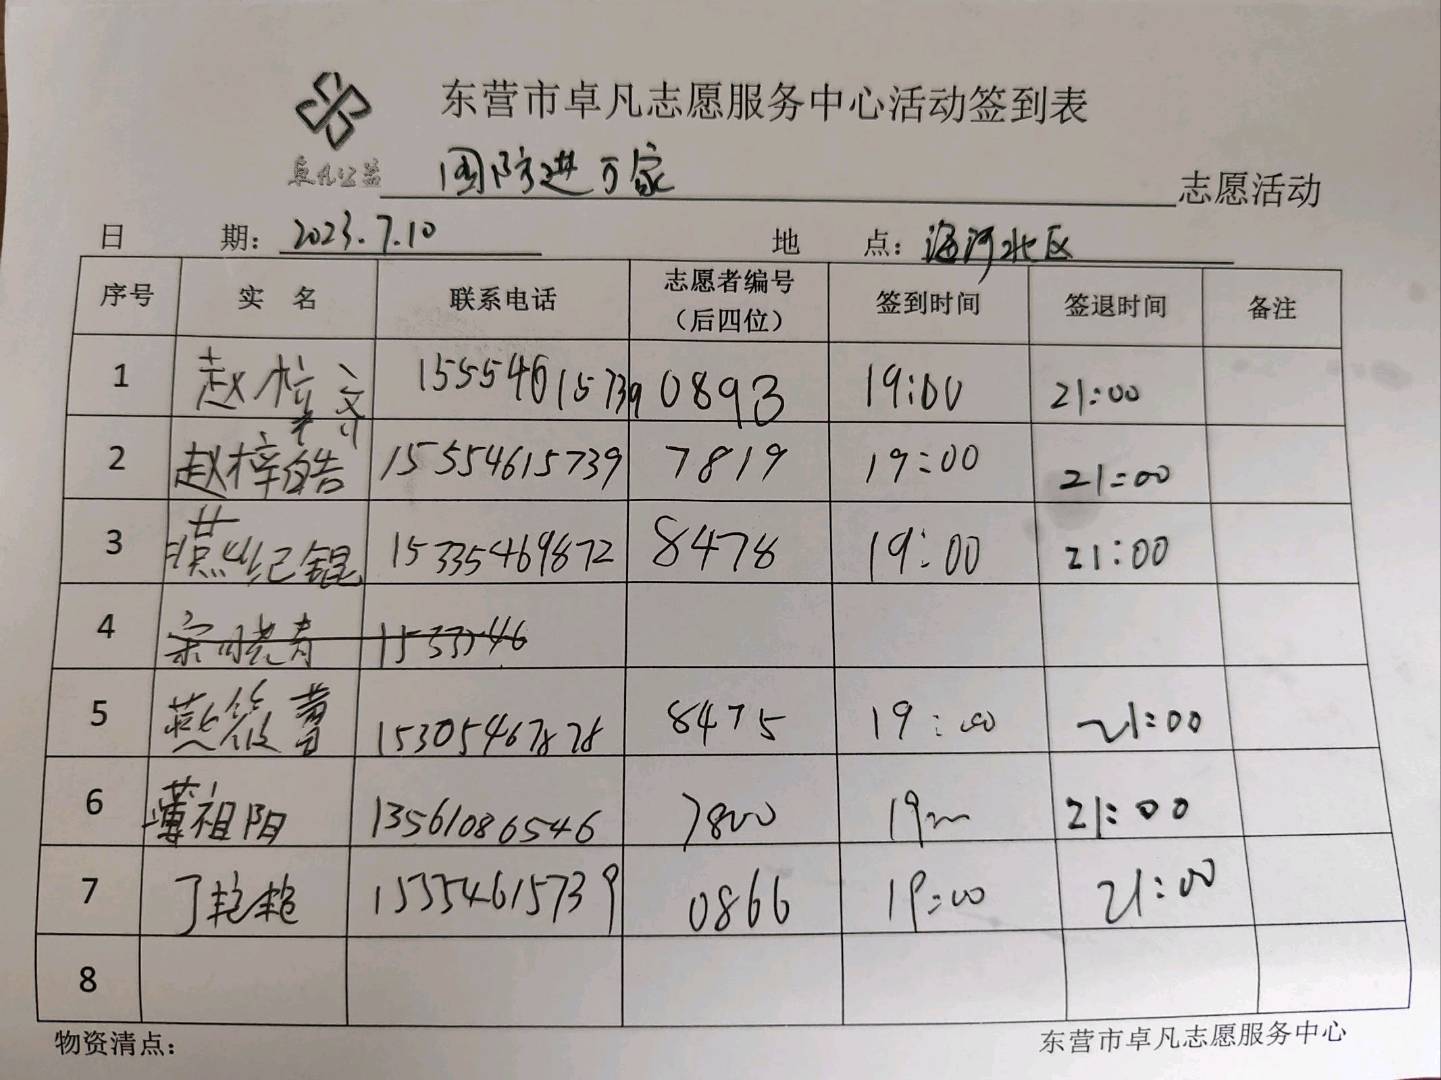 东营市卓凡志愿服务中心活动签到表
卓凡公益 国防进万家 志愿活动
日 期：2023.7.10 地 点：海河北区
序号 实 名 联系电话 志愿者编号（后四位） 签到时间 签退时间 备注
1 赵梓 15554615739 0893 19:00 21:00
2 赵梓皓 15554615739 7819 19:00 21:00
3 纪锟 15335469872 8478 19:00 21:00
4 宋晓青 1533546
5 燕筱 15305467878 8475 19:00 21:00
6 薄祖阳 13561086546 7800 19 21:00
7 丁艳艳 15554615739 0866 19:00 21:00
8
物资清点： 东营市卓凡志愿服务中心